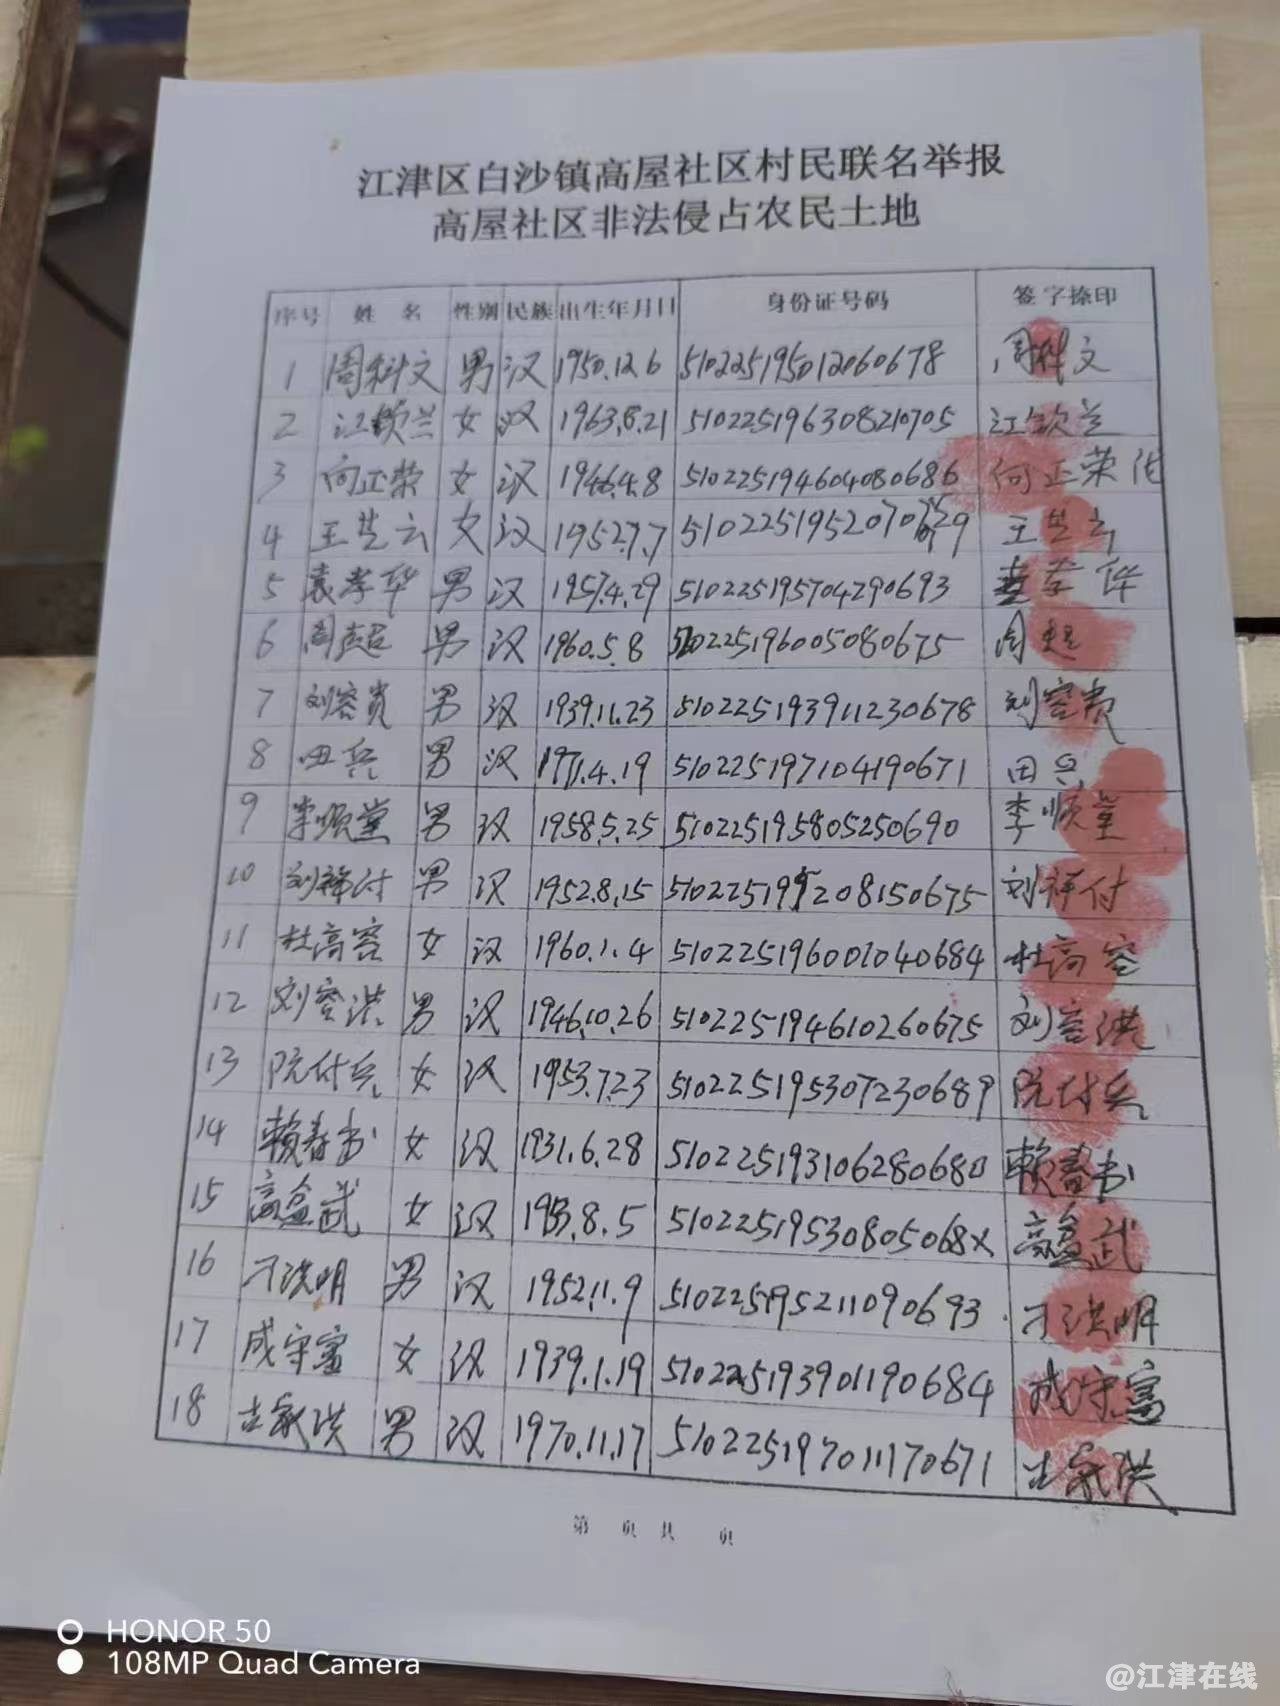 江津区白沙镇高屋社区村民联名举报
高屋社区非法侵占农民土地
序号 姓 名 性别 民族 出生年月日 身份证号码 签字捺印
1 周科文 男 汉 1950.12.6 510225195012060678 周科文
2 江钦兰 女 汉 1963.8.21 510225196308210705 江钦兰
3 向正荣 女 汉 1946.4.8 510225194604080686 向正荣代
4 王芝云 女 汉 1952.7.7 王芝云
5 袁孝华 男 汉 1957.4.29 510225195704290693 袁孝华
6 周超 男 汉 1960.5.8 510225196005080675 周超
7 刘容贵 男 汉 1939.11.23 510225193911230678 刘容贵
8 田兵 男 汉 1971.4.19 510225197104190671 田兵
9 李顺堂 男 汉 1958.5.25 510225195805250690 李顺堂
10 刘祥付 男 汉 1952.8.15 510225195208150675 刘祥付
11 杜高容 女 汉 1960.1.4 510225196001040684 杜高容
12 刘容洪 男 汉 1946.10.26 510225194610260675 刘容洪
13 阮付兵 女 汉 1953.7.23 510225195307230689 阮付兵
14 赖春书 女 汉 1931.6.28 510225193106280680 赖春书
15 高益武 女 汉 1953.8.5 51022519530805068X 高益武
16 刁洪明 男 汉 1952.11.9 510225195211090693 刁洪明
17 成守富 女 汉 1939.1.19 510225193901190684 成守富
18 男 汉 1970.11.17 510225197011170671
第 页 共 页
HONOR 50
108MP Quad Camera
@江津在线